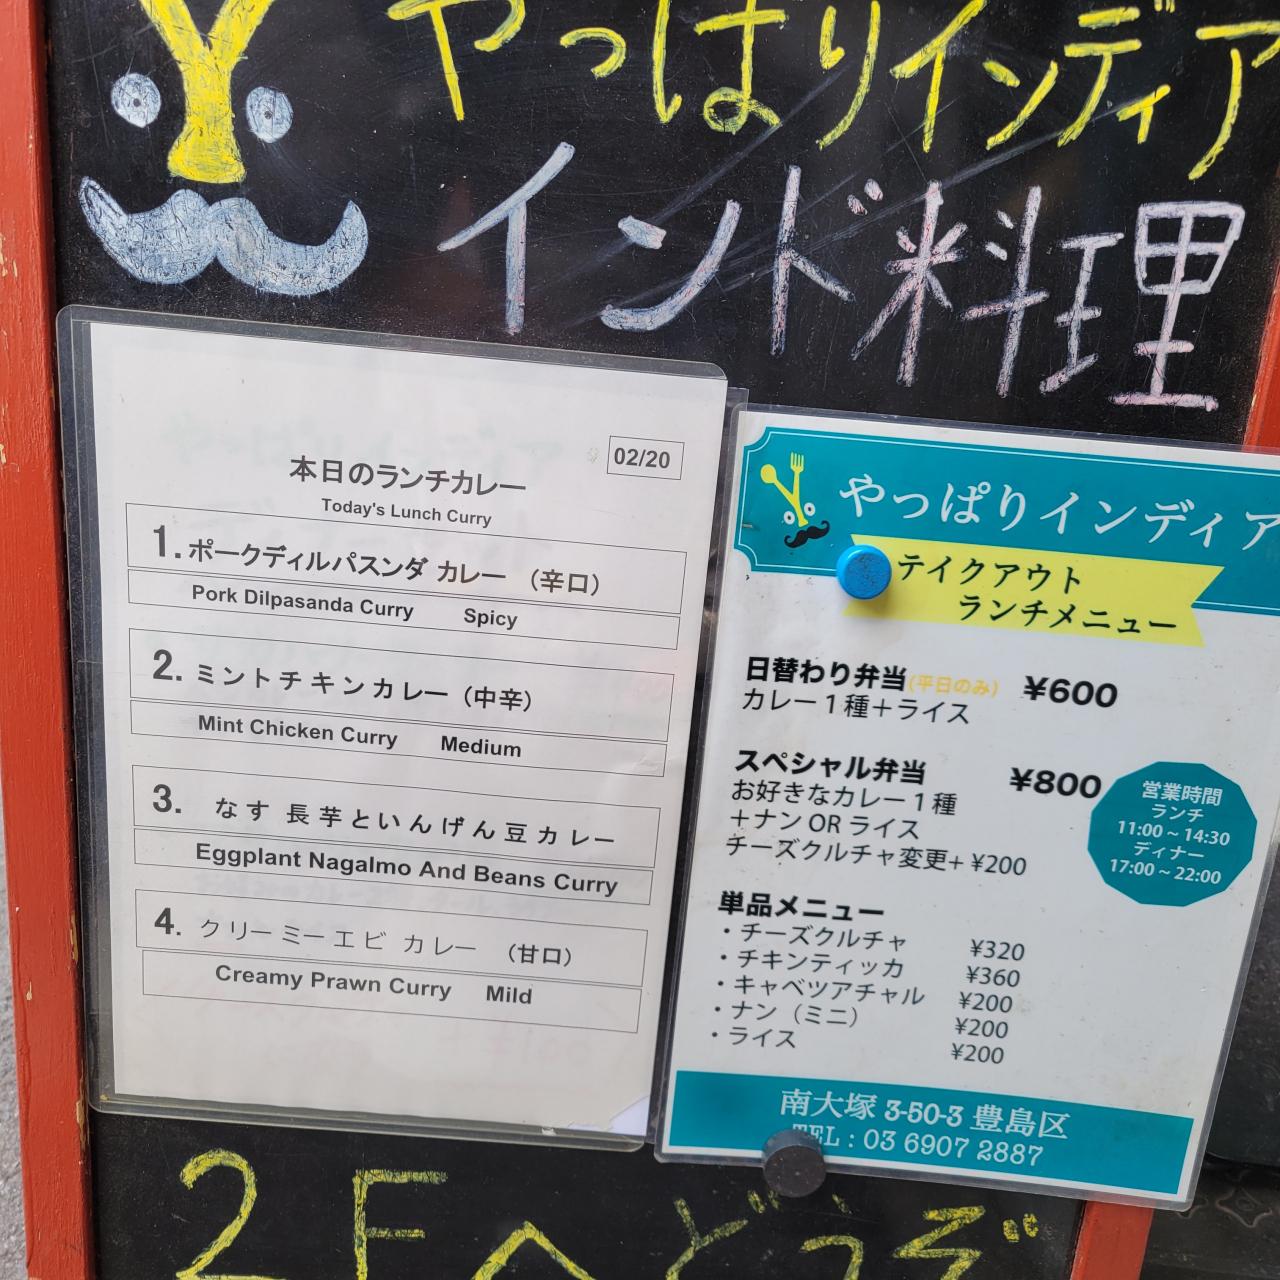 やっぱりインディア
インド料理
02/20
本日のランチカレー
Today's Lunch Curry
1.ポークディルパスンダ カレー （辛口）
Pork Dilpasanda Curry Spicy
2.ミントチキンカレー（中辛）
Mint Chicken Curry Medium
3. なす 長芋といんげん豆カレー
Eggplant Nagalmo And Beans Curry
4. クリーミーエビ カレー （甘口）
Creamy Prawn Curry Mild
やっぱりインディア
テイクアウト
ランチメニュー
日替わり弁当(平日のみ) ¥600
カレー1種＋ライス
スペシャル弁当 ¥800
お好きなカレー1種
＋ナン OR ライス
チーズクルチャ変更+ ¥200
営業時間
ランチ
11:00 ~ 14:30
ディナー
17:00 ~ 22:00
単品メニュー
・チーズクルチャ ¥320
・チキンティッカ ¥360
・キャベツアチャル ¥200
・ナン（ミニ） ¥200
・ライス ¥200
南大塚 3-50-3 豊島区
TEL : 03 6907 2887
2Fへどうぞ